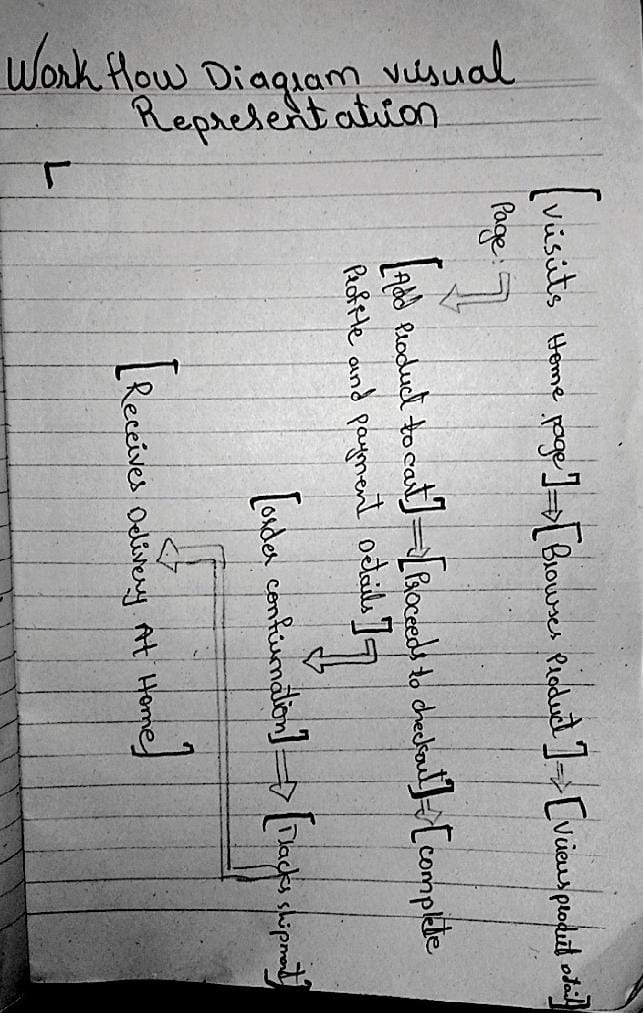 Work flow Diagram visual
Representation
[Visits Home page] ⇒ [Browses Product] ⇒ [Views product detail
Page:
[Add Product to cart] ⇒ [Proceeds to checkout] ⇒ [complete
Profile and Payment Details]
[order confirmation] ⇒ [Tracks shipment]
[Receives Delivery At Home]